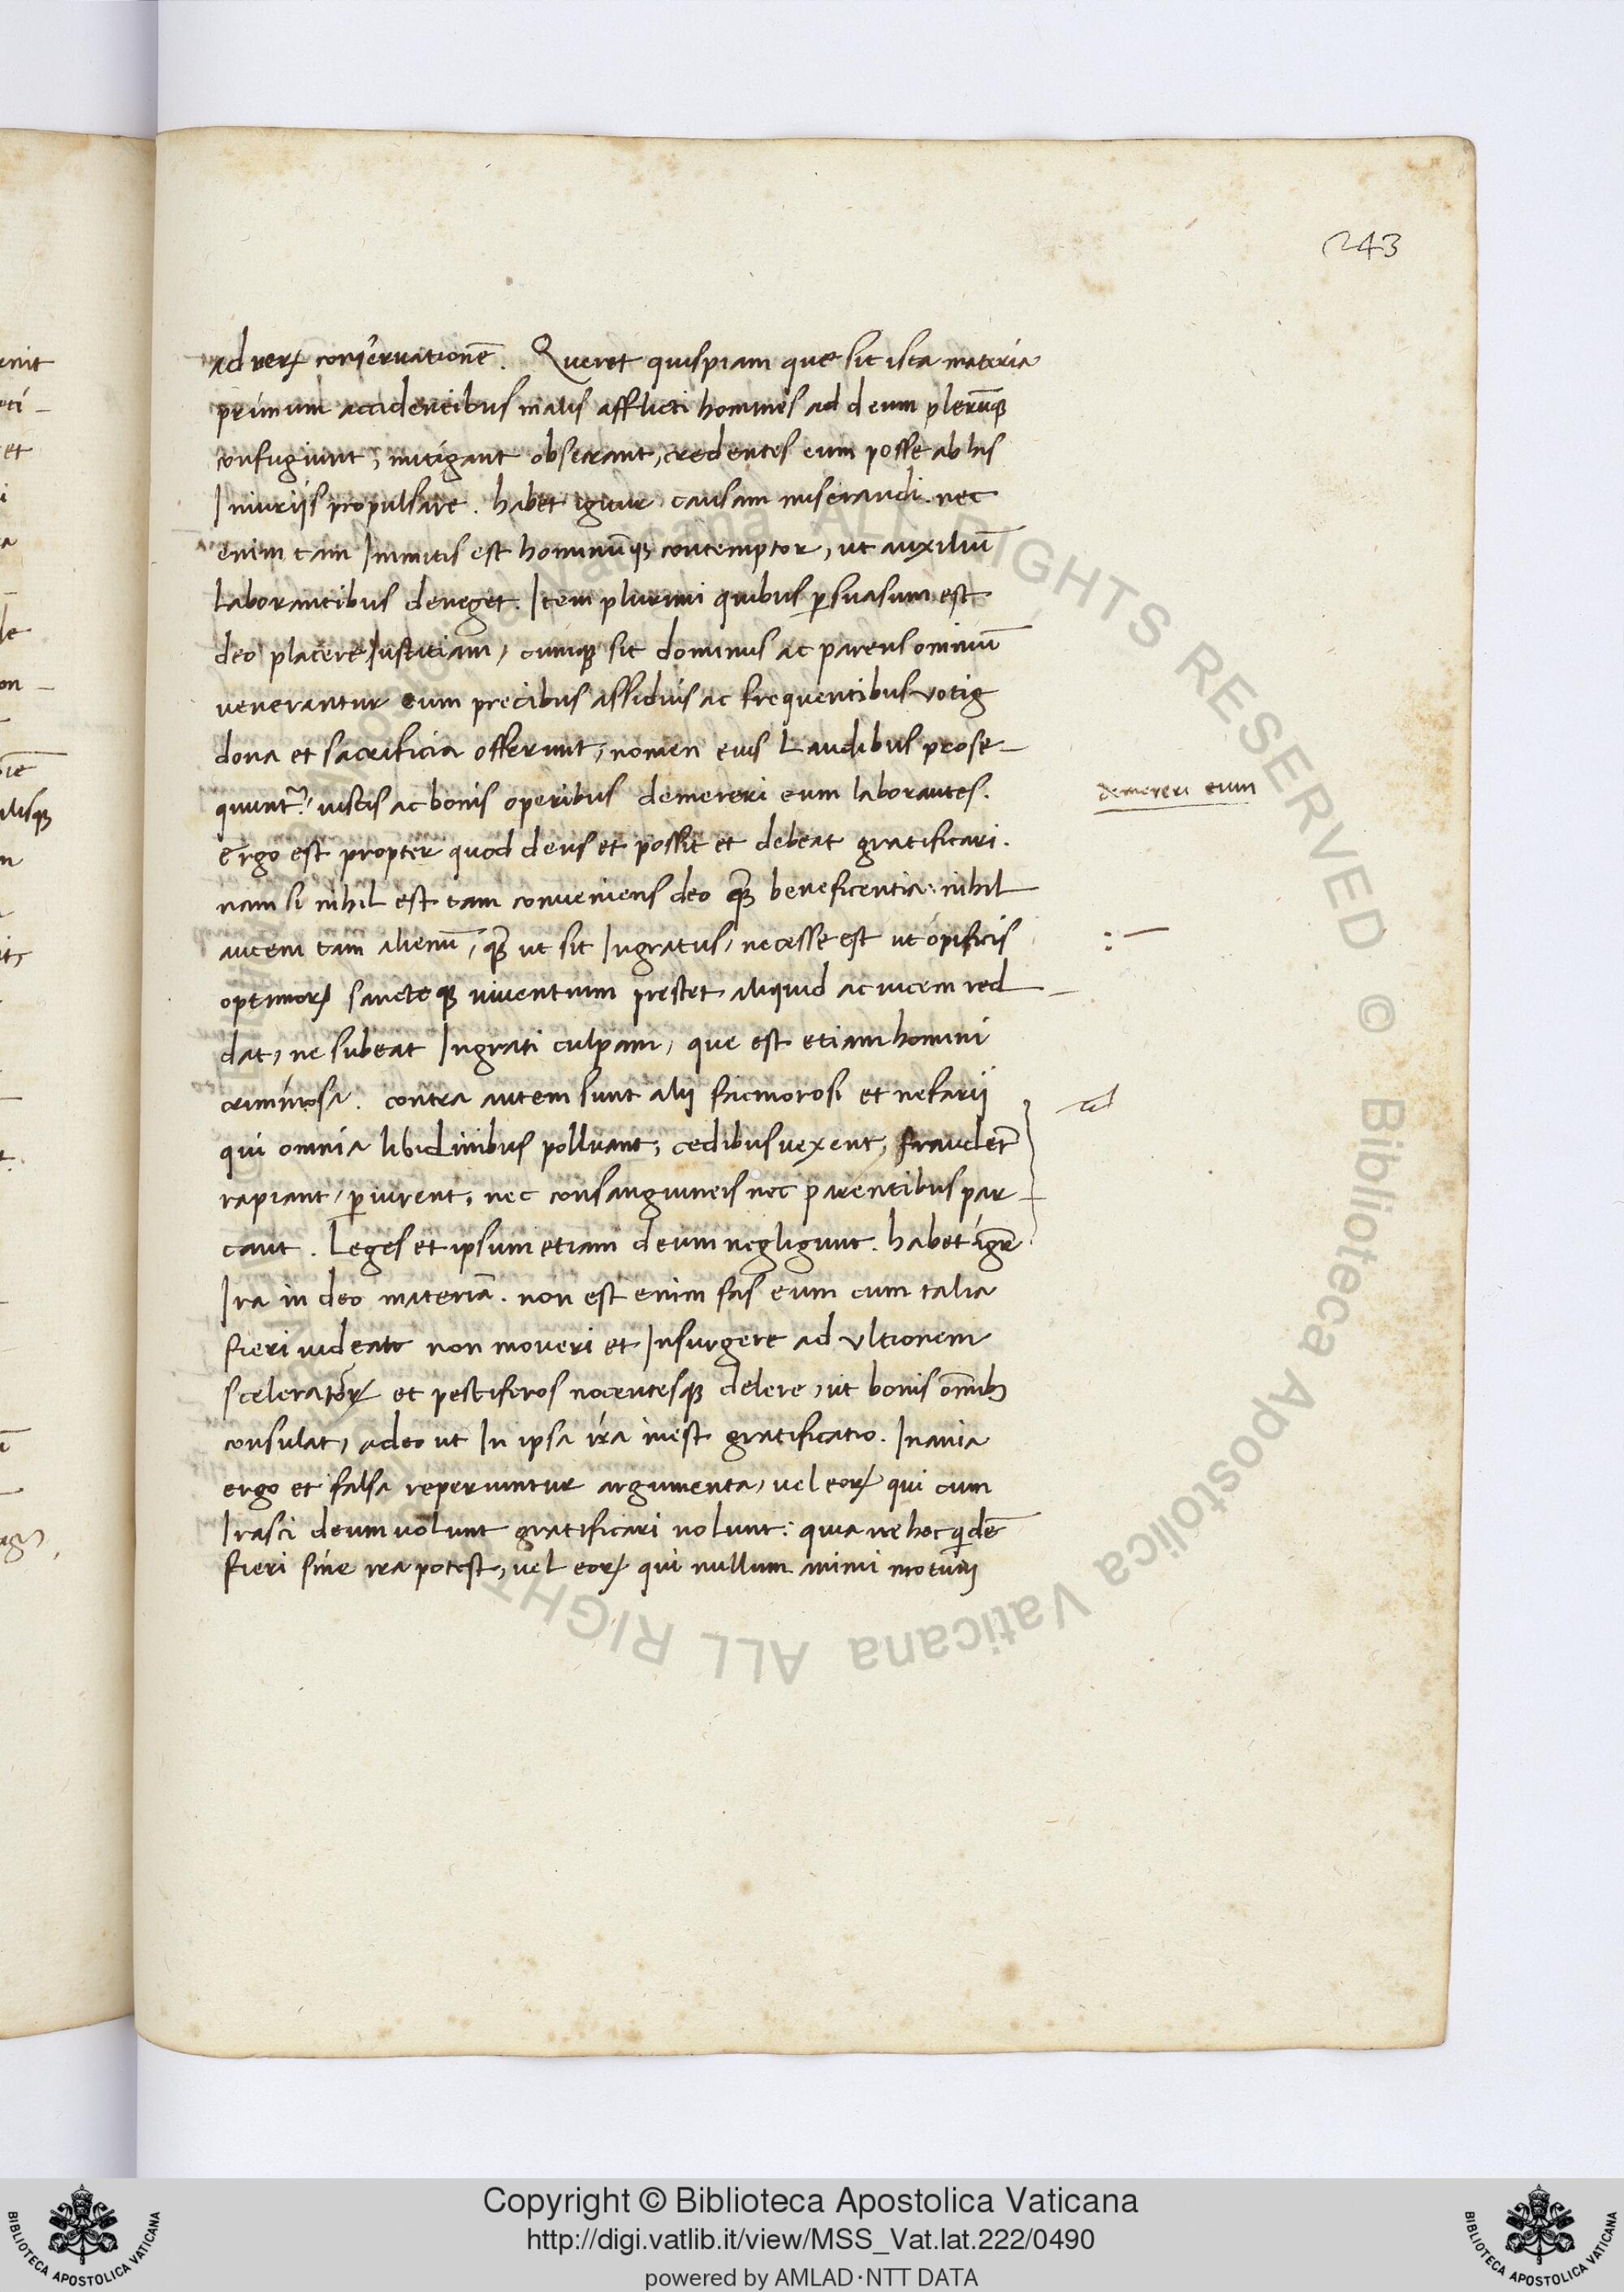 243
ad reꝝ conseruationē. Queret quispiam que sit ista materia
primum accidentibus malis afflicti homines ad deum plerūqꝫ
confugiunt, mitigant obsecrant, credentes eum posse ab his
Iniuriis propulsare. habet igitur causam miserandi. nec
enim tam Inmitis est hominūqꝫ contemptor, ut auxiliū
laborantibus deneget. Item plurimi quibus ꝑsuasum est
deo placere Iustitiam, cumqꝫ sit dominus ac parens omniū
venerantur eum precibus assiduis ac frequentibus votis
dona et sacrificia offerunt, nomen eius Laudibus prose-
quunt᷑, iustis ac bonis operibus demereri eum laborantes.
demereri eum
ergo est propter quod deus et possit et debeat gratificari.
nam si nihil est tam conueniens deo qꝫ̄ beneficentia: nihil
autem tam alienū, qꝫ̄ ut sit Ingratus, necesse est ut opificiis
optimoꝝ sancteqꝫ uiuentium prestet aliquid ac uicem red-
dat, ne subeat Ingrati culpam, que est etiam homini
criminosa. contra autem sunt alij facinorosi et nefarii
qui omnia libidinibus polluant, cedibus uexent, fraudēt
rapiant, ꝑiurent, nec consanguineis nec parentibus par-
cant. Leges et ipsum etiam deum negligunt. habet igr̄
Ira in deo materiā. non est enim fas eum cum talia
fieri uideat non moveri et Insurgere ad ultionem
sceleratoꝝ et pestiferos nocentesqꝫ delere, ut bonis om̄ibꝫ
consulat, adeo ut In ipsa ira inest gratificatio. Inania
ergo et falsa reperiuntur argumenta, uel eoꝝ qui cum
Irasci deum volunt gratificari nolunt: quia ne hoc qͥdē
fieri sine ira potest, uel eoꝝ qui nullum animi motum
Copyright © Biblioteca Apostolica Vaticana
http://digi.vatlib.it/view/MSS_Vat.lat.222/0490
powered by AMLAD·NTT DATA
BIBLIOTECA APOSTOLICA VATICANA
BIBLIOTECA APOSTOLICA VATICANA